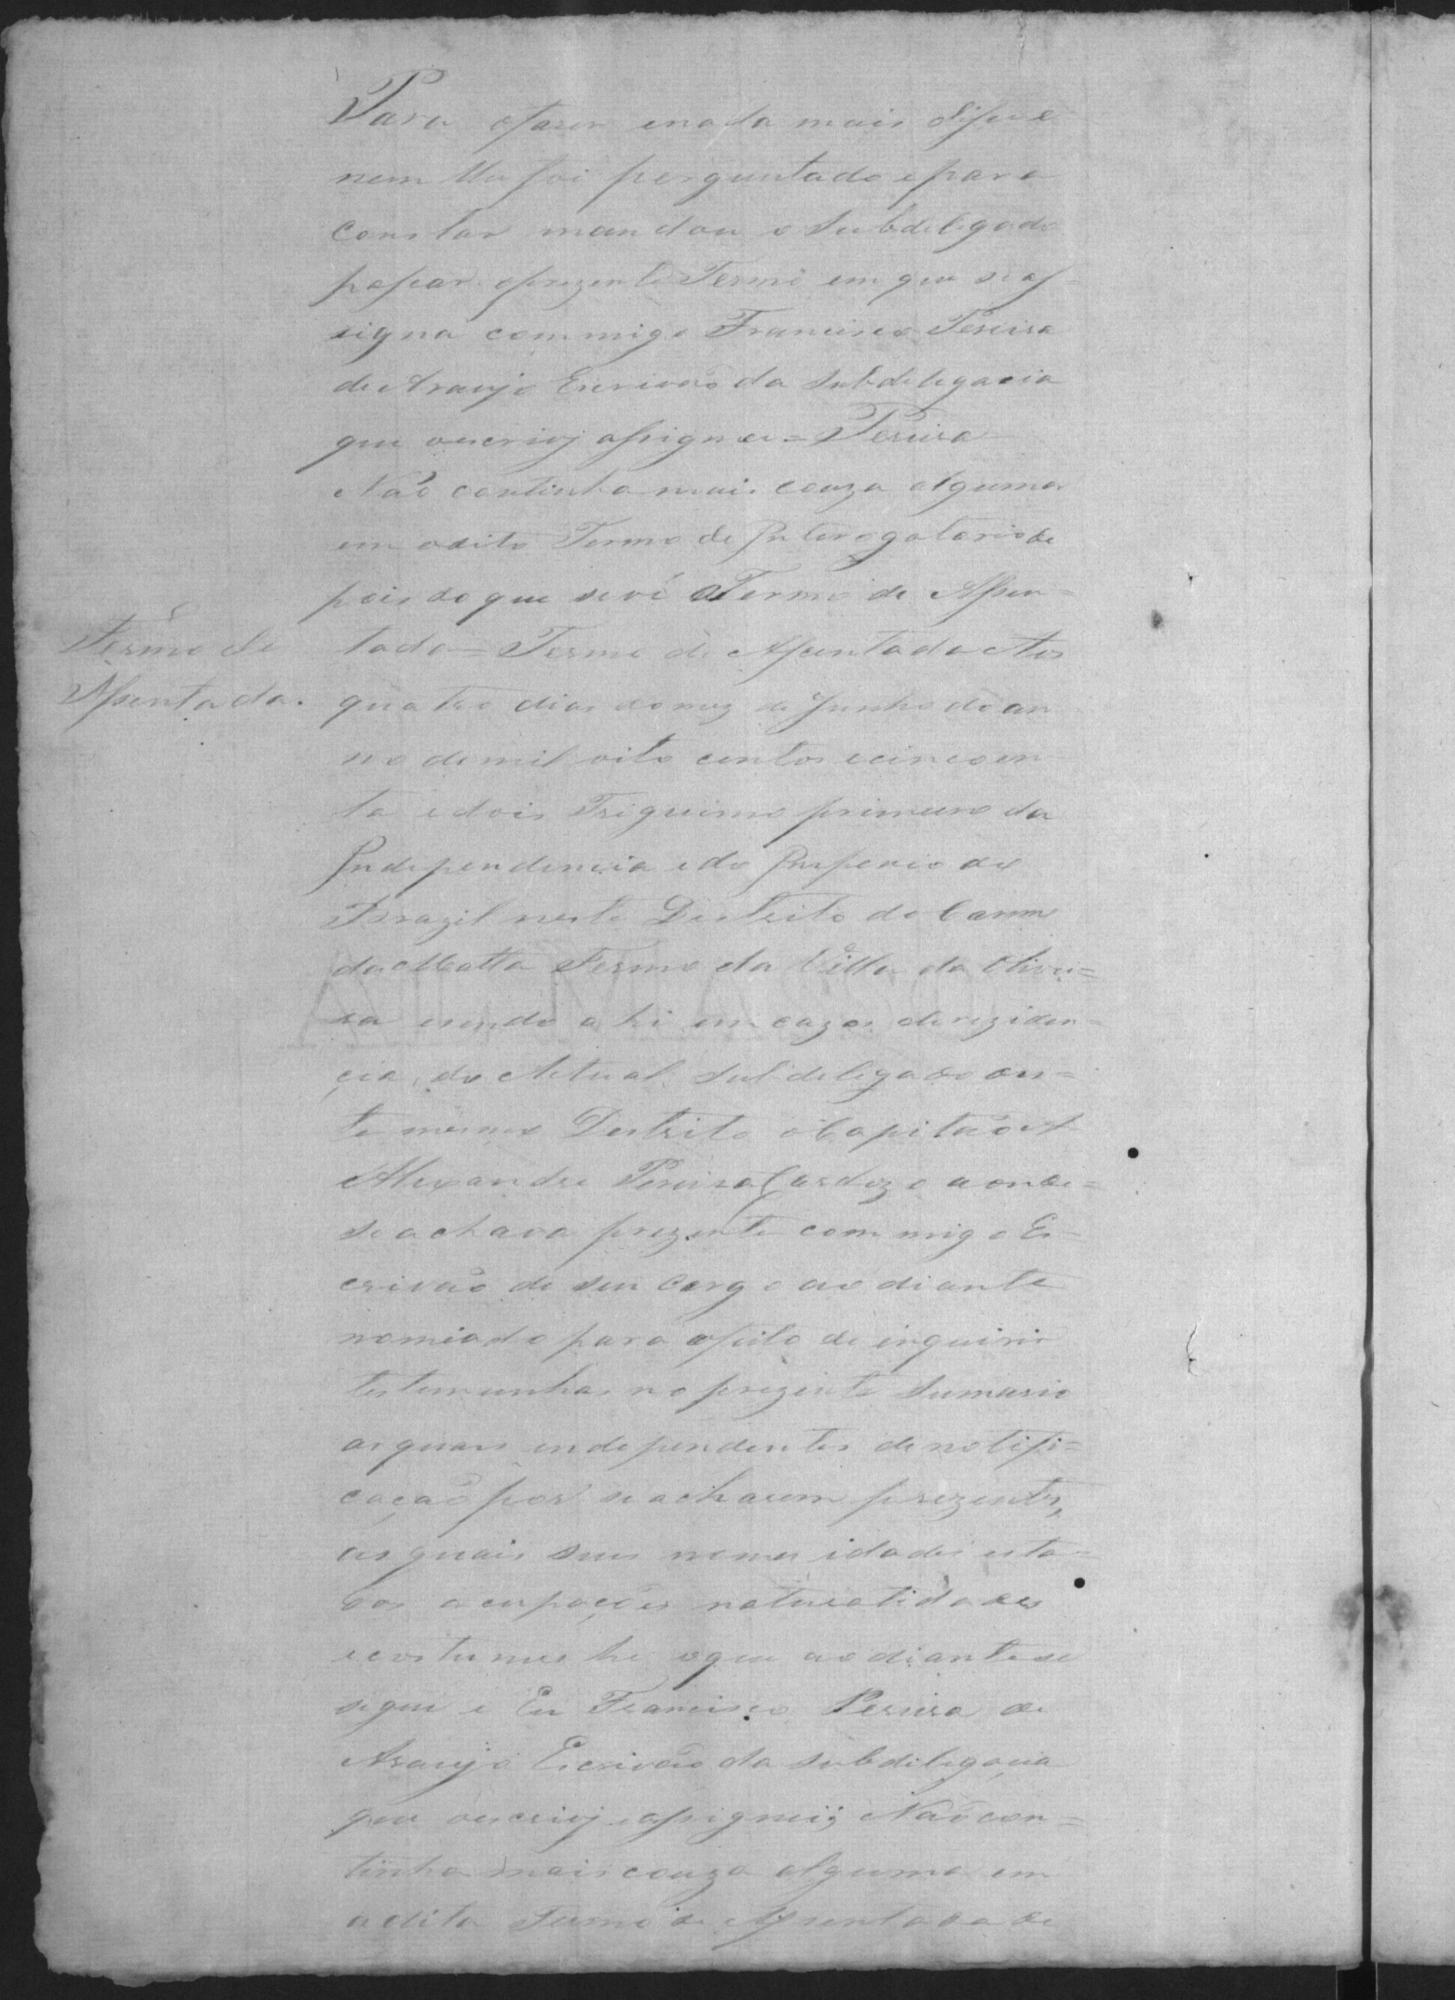 Para ofazer enada mais dise e
nem lhe foi perguntado epara
constar mandou o Subdelegado
pasar oprezente Termo em que se as
signa commigo Francisco Pereira
de Araujo Escrivaõ da Subdelegacia
que oescrivi assignei = Pereira
Naõ continha mais couza alguma
em odito Termo de Interogatorio de
pois do que se vê o Termo de Assen=
Termo de
Assentada.
tada = Termo de Assentada Aos
quatro dias do mez de Junho do an
no de mil oito centos ecincoen
ta edois Trigesimo primeiro da
Independencia edo Imperio do
Brazil neste Destrito do Carmo
da Matta Termo da Villa da Olivei=
ra esendo ahi em cazas dereziden=
cia do Actual Subdelegado des=
te mesmo Destrito o Capitaõ
Alexandre Pereira Cardozo aonde=
se achava prezente commigo Es
crivaõ de seu Cargo aodiante
nomiado para efeito de inquirir
testemunhas no prezente Sumario
as quais independentes de notifi=
caçaõ por se acharem prezentes,
as quais seus nomes idades esta=
dos ocupaçoes naturalidades
ecostumes he oque aodiante se
segue e Eu Francisco Pereira de
Araujo Escrivaõ da Subdelegacia
que oescrivi eassignei; Naõ con=
tinha mais couza alguma em
odito Termo de Assentada de